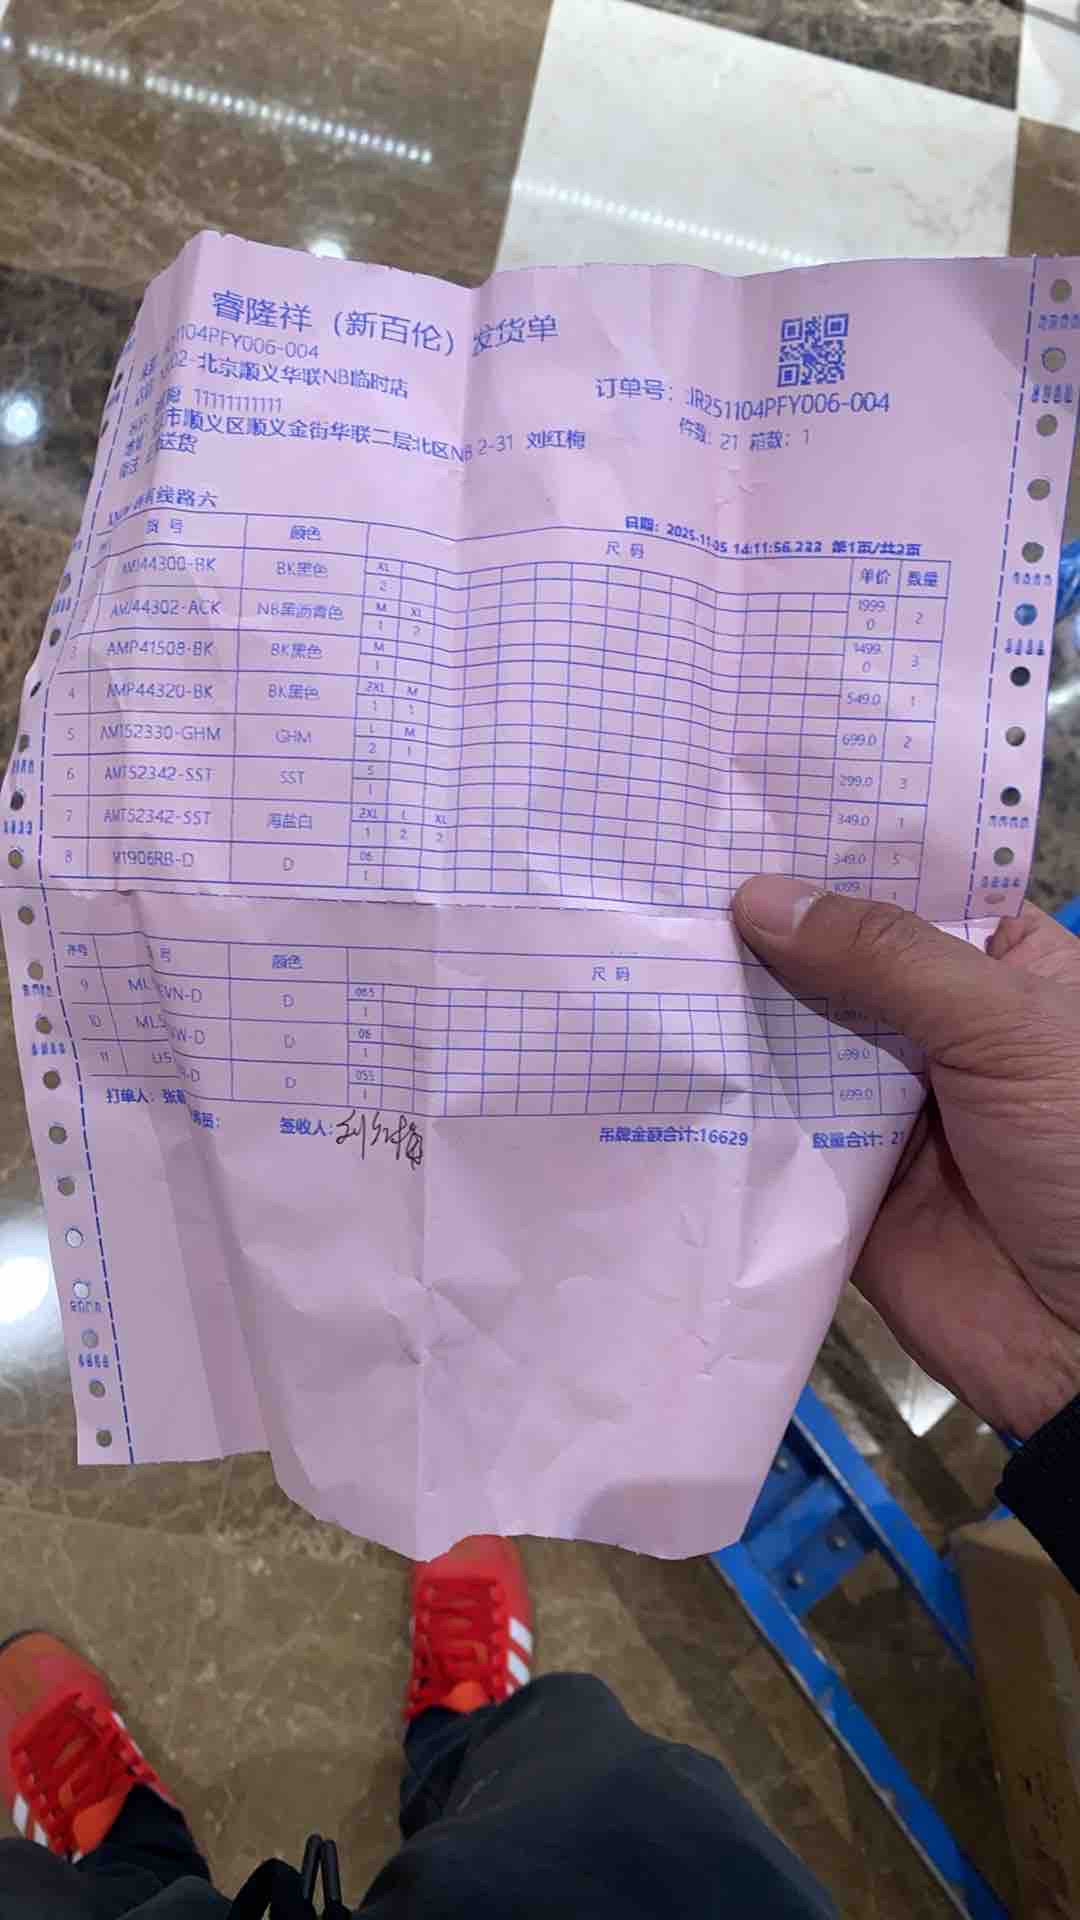 睿隆祥（新百伦）发货单
1104PFY006-004
订单号：JR251104PFY006-004
02-北京顺义华联NB临时店
件数：21 箱数：1
11111111111
市顺义区顺义金街华联二层北区NB 2-31 刘红梅
送货
线路六
日期：2025-11-05 14:11:56.222 第1页/共2页
货号 颜色 尺码 单价 数量
AMJ44300-BK BK黑色 XL 2 1999.0 2
AMJ44302-ACK NB黑沥青色 M XL 1 2 1499.0 3
3 AMP41508-BK BK黑色 M 1 549.0 1
4 AMP44320-BK BK黑色 2XL M 1 1 699.0 2
5 AMT52330-GHM GHM L M 2 1 299.0 3
6 AMT52342-SST SST S 1 349.0 1
7 AMT52342-SST 海盐白 2XL L XL 1 2 2 349.0 5
8 M1906RB-D D 06 1 1099. 1
序号 号 颜色 尺码
9 ML VN-D D 065 1
10 ML5 W-D D 06 1 699.0 1
11 U5 -D D 055 1 699.0 1
打单人：张 员： 签收人：刘红梅 吊牌金额合计:16629 数量合计：21